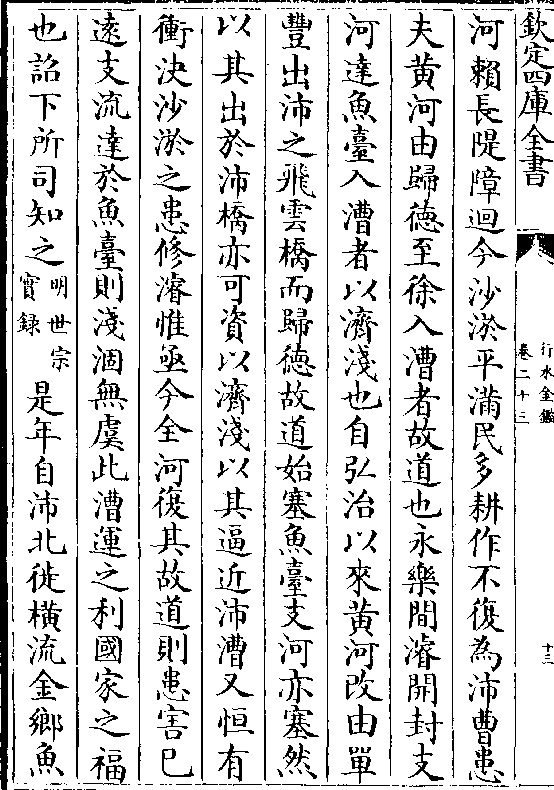 欽定四庫全書
行水金鑑
卷二十三
十三
河賴長隄障迴今沙淤平滿民多耕作不復為沛曹患
夫黄河由歸德至徐入漕者故道也永樂間濬開封支
河達魚臺入漕者以濟淺也自弘治以來黄河改由單
豐出沛之飛雲橋而歸德故道始塞魚臺支河亦塞然
以其出於沛橋亦可資以濟淺以其逼近沛漕又恒有
衝決沙淤之患修濬惟亟今全河復其故道則患害已
逺支流達於魚臺則淺涸無虞此漕運之利國家之福
也詔下所司知之明世宗實録是年自沛北徙横流金鄉魚